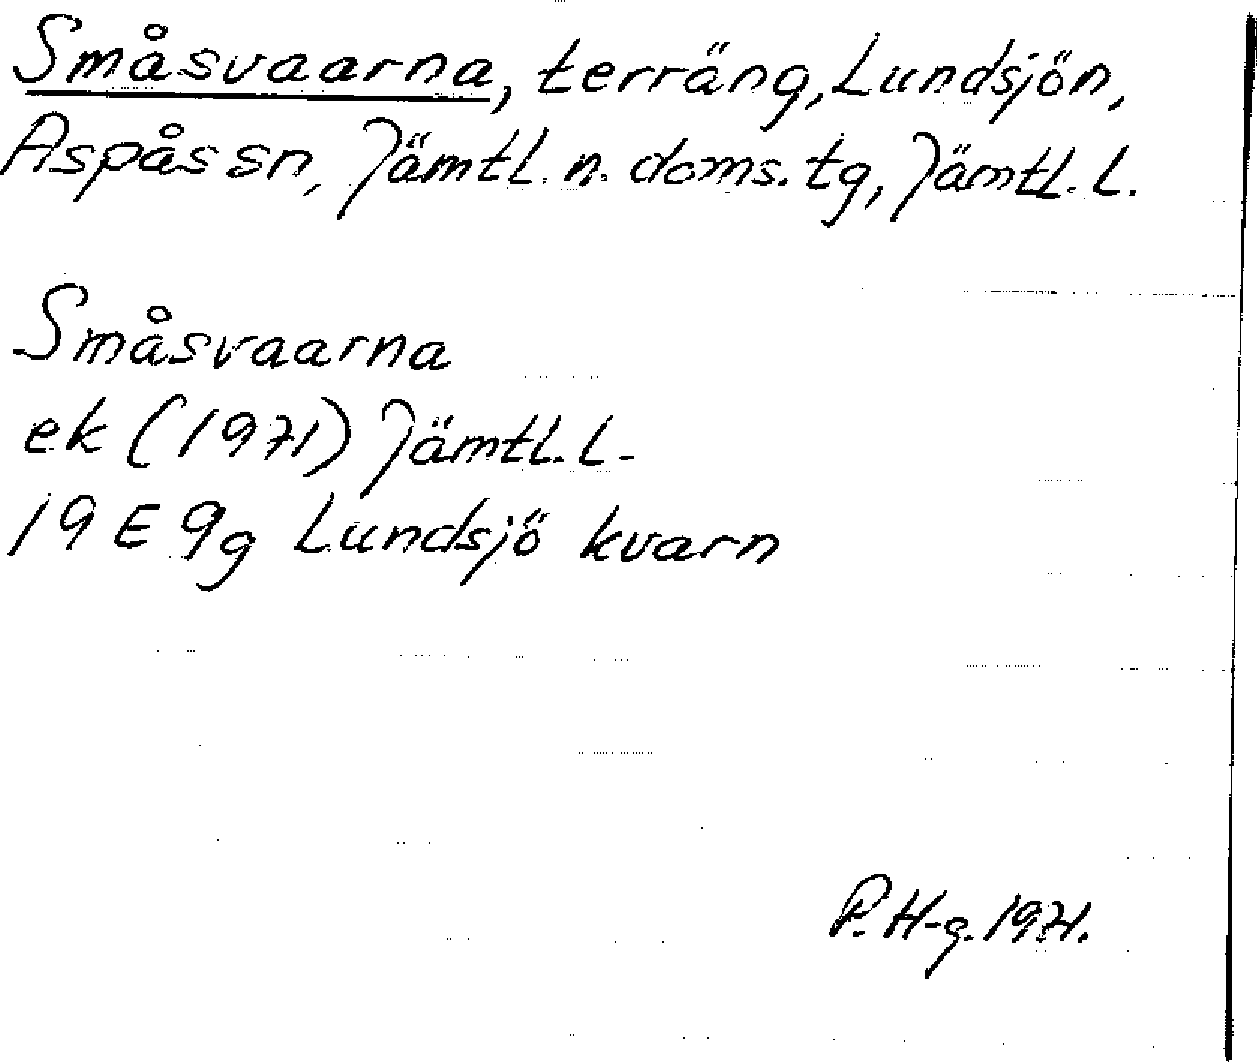 Småsvaarna, terräng, Lundsjön,
Aspås sn, Jämtl. n. doms. tg, Jämtl. l.
Småsvaarna
ek (1971) Jämtl. l.
19 E 9g Lundsjö kvarn
P. H-g. 1971.